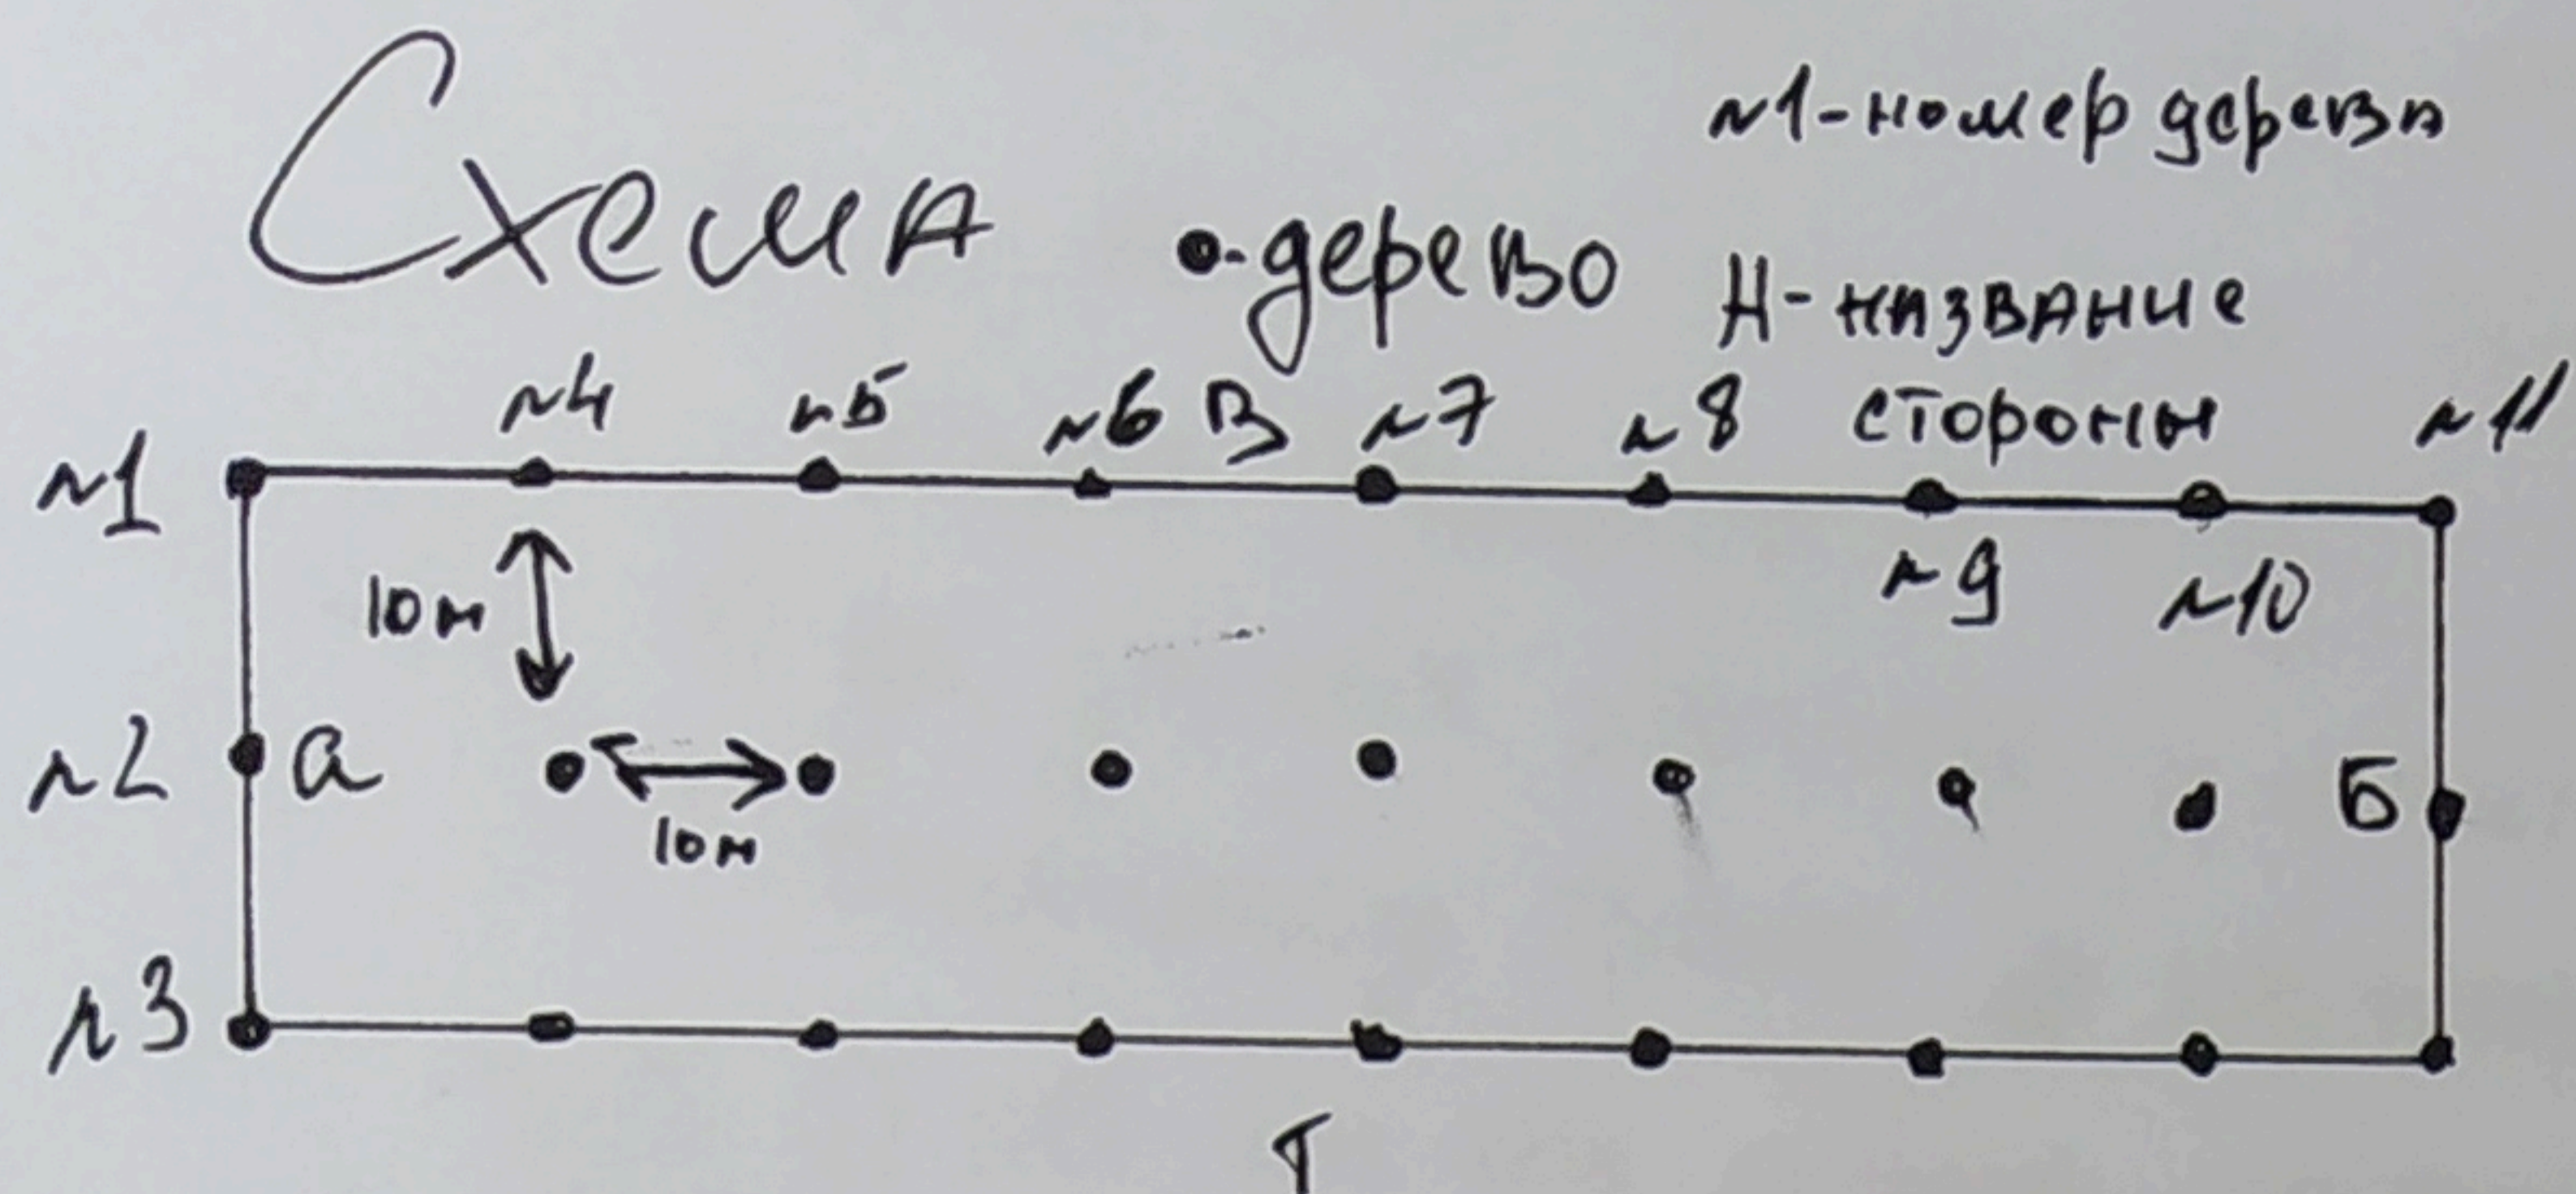 Схема
№1-номер дерева
•-дерево
Н-название
стороны
№1
№4
№5
№6
В
№7
№8
№11
№9
№10
10м
№2
а
10м
Б
№3
Г